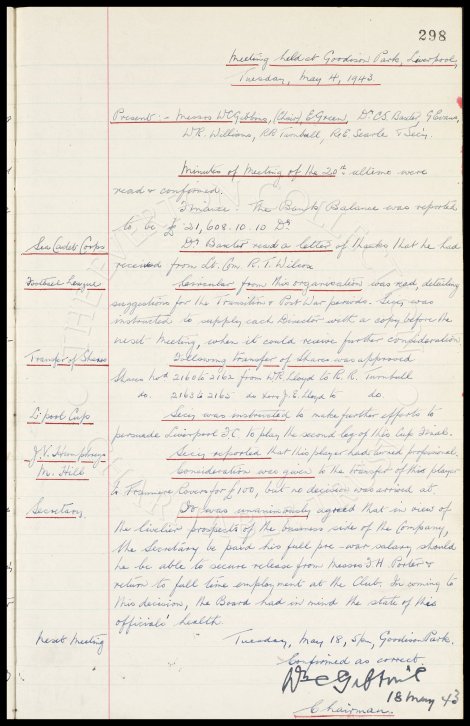 298
Meeting held at Goodison Park, Liverpool,
Tuesday, May 4, 1943.
Present :- Messrs WC Gibbins, (Chair), E Green, Dr. C.S. Baxter, G Evans,
W.R. Williams, R.R. Turnbull, R.E. Searle & Secy.
Minutes of Meeting of the 20th ultimo were
read & confirmed.
Finance. The Bank Balance was reported
to be £21,608.10.10 Dr
Sea Cadet Corps Dr Baxter read a letter of thanks that he had
received from Lt. Com. R.T. Wilcox
Football League Circular from this organisation was read, detailing
suggestions for the Transition & Post War periods. Secy. was
instructed to supply each Director with a copy before the
next meeting, when it could receive further consideration
Transfer of Shares Following transfer of shares was approved
Shares Nos 2160 to 2162 from W.R. Lloyd to R.R. Turnbull
do. 2163 to 2165 do J.E. Lloyd to do.
L'pool Cup Secy was instructed to make further efforts to
persuade Liverpool F.C. to play the second leg of this Cup Final.
J.V. Humphreys Secy reported that this player had turned professional.
M. Hill Consideration was given to the transfer of this player
to Tranmere Rovers for £100, but no decision was arrived at.
Secretary. It was unanimously agreed that in view of
the livelier prospects of the business side of the Company,
the Secretary be paid his full pre-war salary should
he be able to secure release from Messrs J.H. Porter &
return to full time employment at the Club. In coming to
this decision, the Board had in mind the state of this
officials' health.
Next Meeting Tuesday, May 18, 5pm, Goodison Park.
Confirmed as correct.
Wm C Gibbins
18 May 43
Chairman.